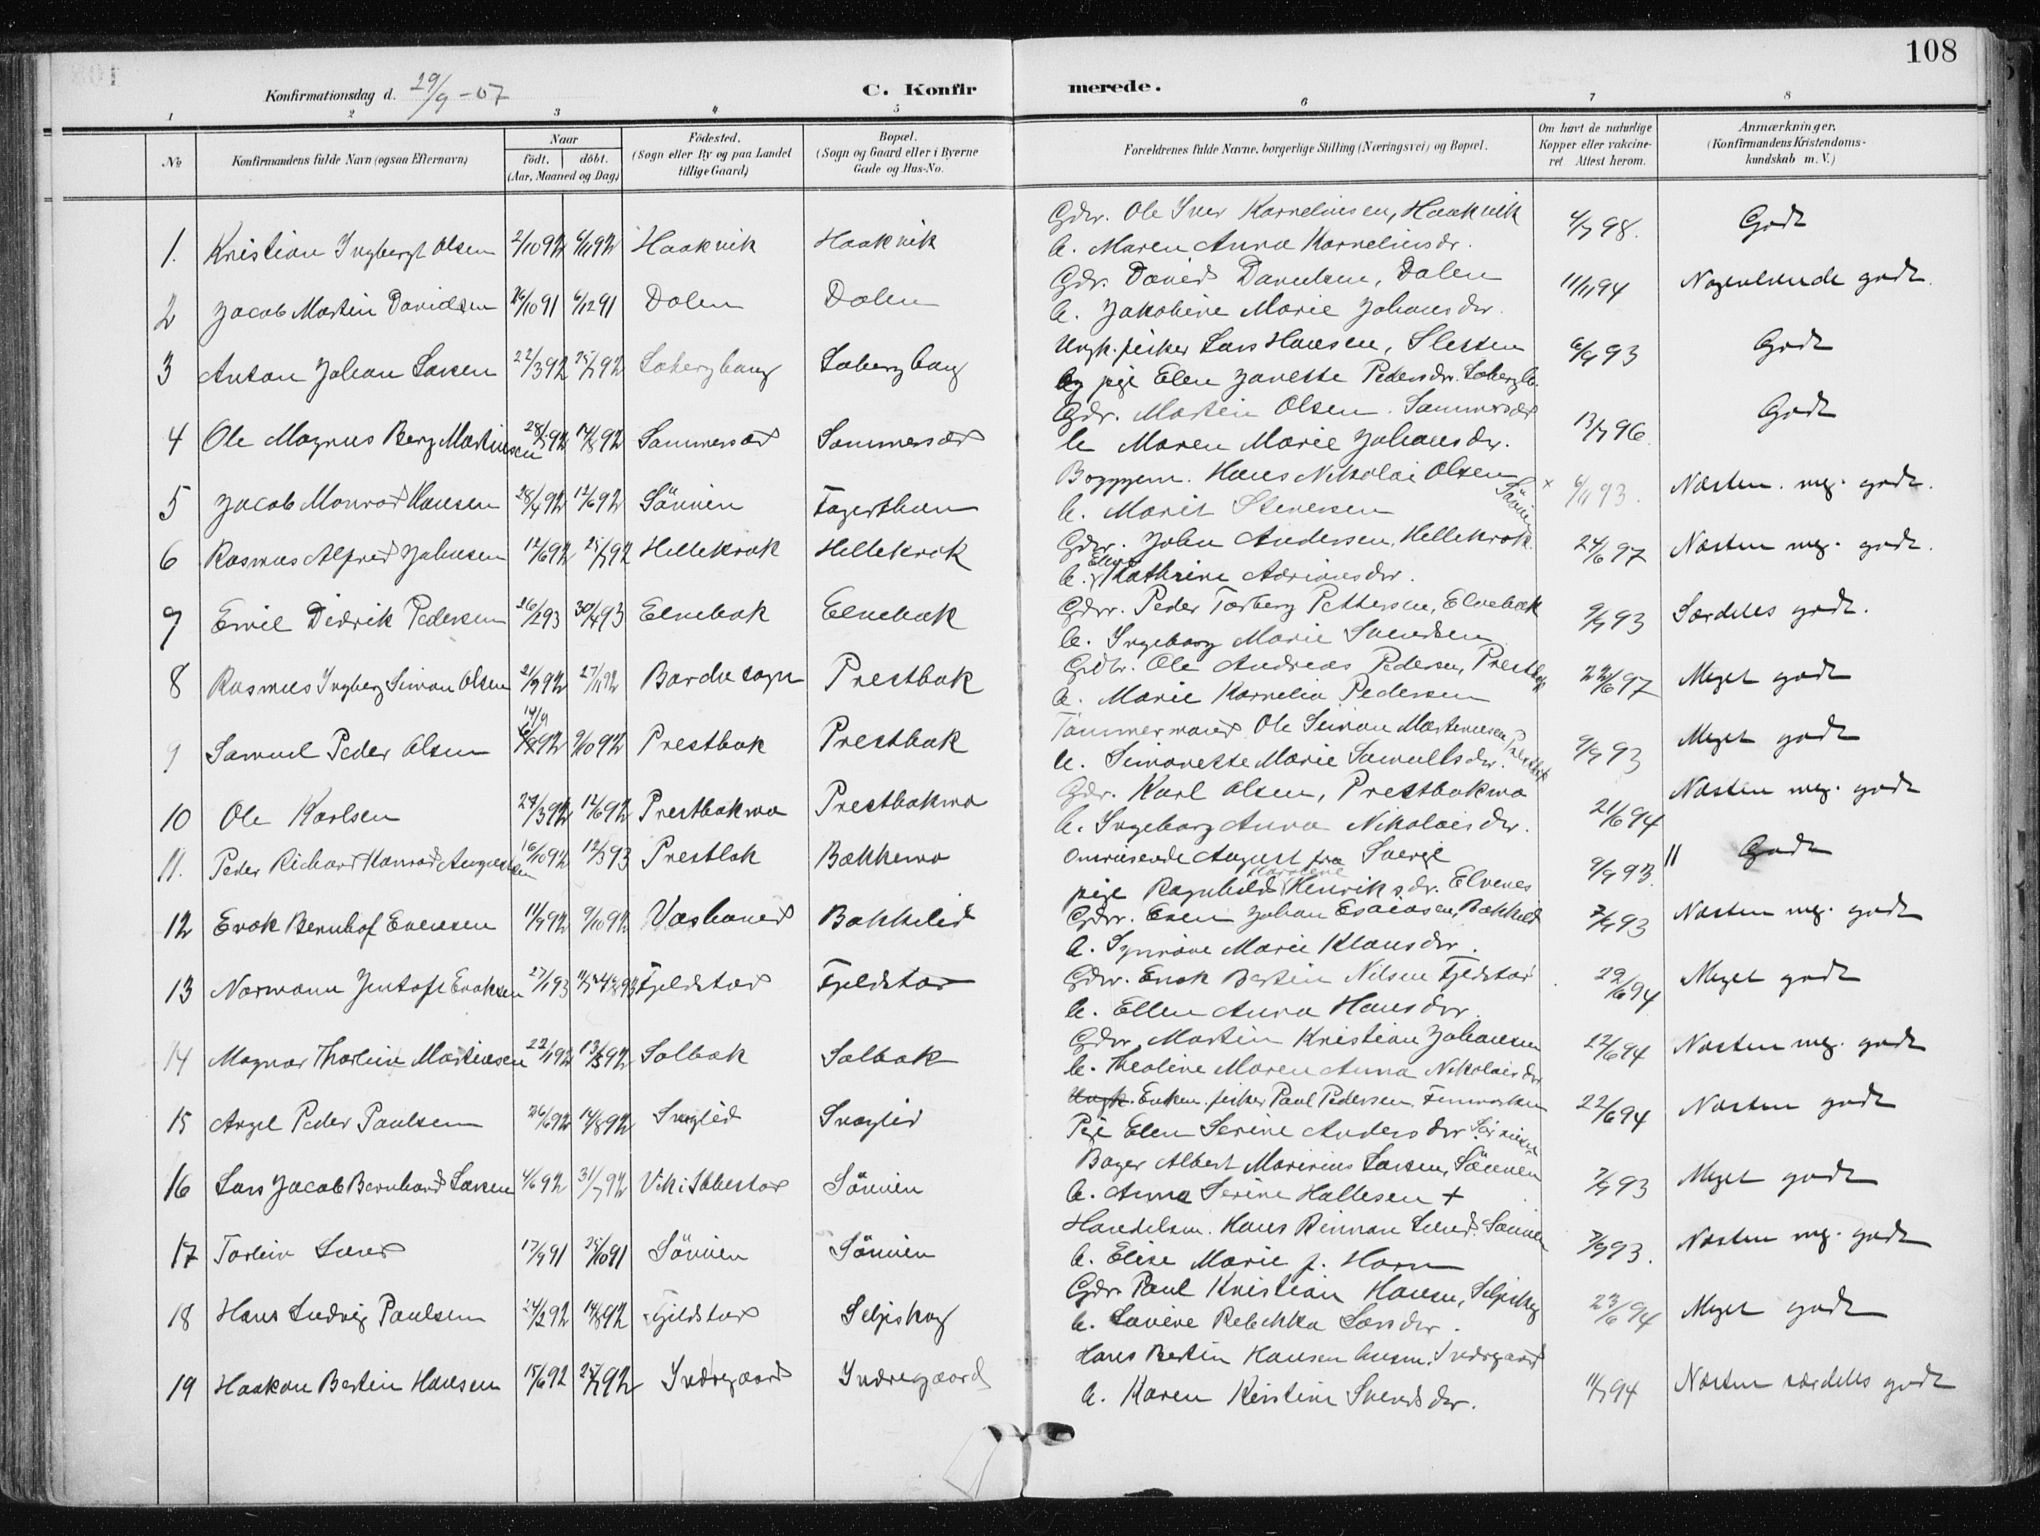 108
Konfirmationsdag d. 29/9 - 07
C. Konfirmerede.
1 2 3 4 5 6 7 8
No
Konfirmandens fulde Navn (ogsaa Efternavn)
Naar
født. døbt.
(Aar, Maaned og Dag)
Fødested.
(Sogn eller By og paa Landet
tillige Gaard)
Bopæl.
(Sogn og Gaard eller i Byerne
Gade og Hus-No.
Forældrenes fulde Navne, borgerlige Stilling (Næringsvei) og Bopæl.
Om havt de naturlige
Kopper eller vakcine-
ret Attest herom.
Anmærkninger.
(Konfirmandens Kristendoms-
kundskab m. V.)
Gdr. Ole Iver Kornelinsen, Haakvik
1. Kristian Ingbergt Olsen 2/10 92 6/11 92 Haakvik Haakvik 4/7 98. Godt
h. Maren Anna Kornelinsdr.
Gdr. David Danielsen, Dalen
2 Jacob Martin Davidsen 26/10 91 6/12 91 Dalen Dalen 11/11 94 Nogenlunde godt.
h. Jakobine Marie Johansdr.
Ungk. fisker Lars Hansen, Sletten
3 Anton Johan Larsen 22/3 92 25/7 92 Sobergbaug Sobergbaug 6/9 93 Godt
og pige Elen Janette Pedersdr.
Gdr. Martin Olsen. Sammersæt
4 Ole Magnus Berg Martinsen 28/5 92 14/8 92 Sammersæt Sammersæt 13/7 96 Godt
h Maren Marie Johansdr.
Hans Nikolai Olsen Sövien
5 Jacob Monrad Hansen 28/4 92 12/6 92 Sövien 6/11 93. Næsten. meg. godt.
h. Marit Stenersen
Gdr. John Andersen, Hellekrok
6 Rasmus Alfred Johnsen 12/6 92 25/7 92 Hellekrok Hellekrok 24/6 97 Næsten meg. godt.
h. Kathrine Adriansdr.
Gdr. Peder Torberg Pettersen, Elvebak
7 Emil Didrik Pedersen 26/2 93 30/4 93 Elvebak Elvebak 9/9 93 Særdeles godt.
h. Ingeborg Marie Svendsen
Gdbr. Ole Andreas Pedersen, Prestbak
8 Rasmus Ingberg Simon Olsen 21/9 92 27/11 92 Bardu sogn Prestbak 22/6 97 Meget godt
h. Marie Kornelia Pedersen
Tømmermand Ole Simon Martinusen, Prestbak
14/9
9 Samuel Peder Olsen 92 9/10 92 Prestbak Prestbak 9/9 93 Meget godt
h. Simonette Marie Samuelsdr.
Gdr. Karl Olsen, Prestbakmo
10 Ole Karlsen 29/3 92 12/6 92 Prestbakmo Prestbakmo 21/6 94 Næsten meg. godt
h. Ingeborg Anna Nikolaisdr.
Omreisende August fra Sverige
11. Peder Richard Konrad Augustsen 16/10 92 12/3 93 Prestbak Bakkemo 9/9 93. " Godt
pige Ragnhild Karoline Henriksdr. Elvenes
Gdr. Even Johan Esaiasen, Bakkelid
12 Erok Bernhof Evensen 11/9 92 9/10 92 Vashaved Bakkelid 7/9 93 Næsten meg. godt
h. Synnöve Marie Klausdr.
Gdr. Erok Bertin Nilsen Fjeldstad
13 Normann Jentoft Eroksen 27/1 93 Fjeldstad Fjeldstad 22/6 94 Meget godt
h. Ellen Anna Hansdr.
Gdr. Martin Kristian Johansen
14 Magnar Thorlein Martinsen 22/1 92 13/3 92 Salbak Salbak 22/6 94 Næsten meg. godt
h. Theoline Maren Anna Nikolaisdr
Ungk. Enkem. fisker Paul Pedersen. Finmarken
15 Angel Peder Paulsen 26/6 92 14/8 92 Svaglid Svaglid 22/6 94 Næsten godt
Pige Elen Serine Andersdr
Albert Marinius Larsen, Sövien
16 Lars Jacob Bernhard Larsen 4/6 92 31/7 92 Vik i Ibbestad Sövien 7/9 93 Meget godt
h. Anna Serine Hallesen +
Handelsm. Hans Rinnan Lund. Sövien
17 Torlein Lund 17/9 91 25/10 91 Sövien Sövien 7/9 93. Næsten meg. godt
h. Elise Marie f. Horn
Gdr. Paul Kristian Hansen, Seljskog
18 Hans Ludvig Paulsen 24/2 92 14/8 92 Fjeldstad Seljskog 23/6 94 Meget godt
h. Lavine Rebekka Larsdr.
Hans Bertin Hansen Indregaard
19 Haakon Bertin Hansen 15/6 92 25/7 92 Indregaard Indregaard 11/7 94 Næsten særdeles godt
h. Karen Kirstine Svendsdr.